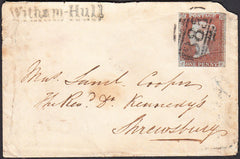 Witham-Hull
ONE PENNY
Mrs. Saml Cooper
The Revd. Dr. Kennedy's
Shrewsbury